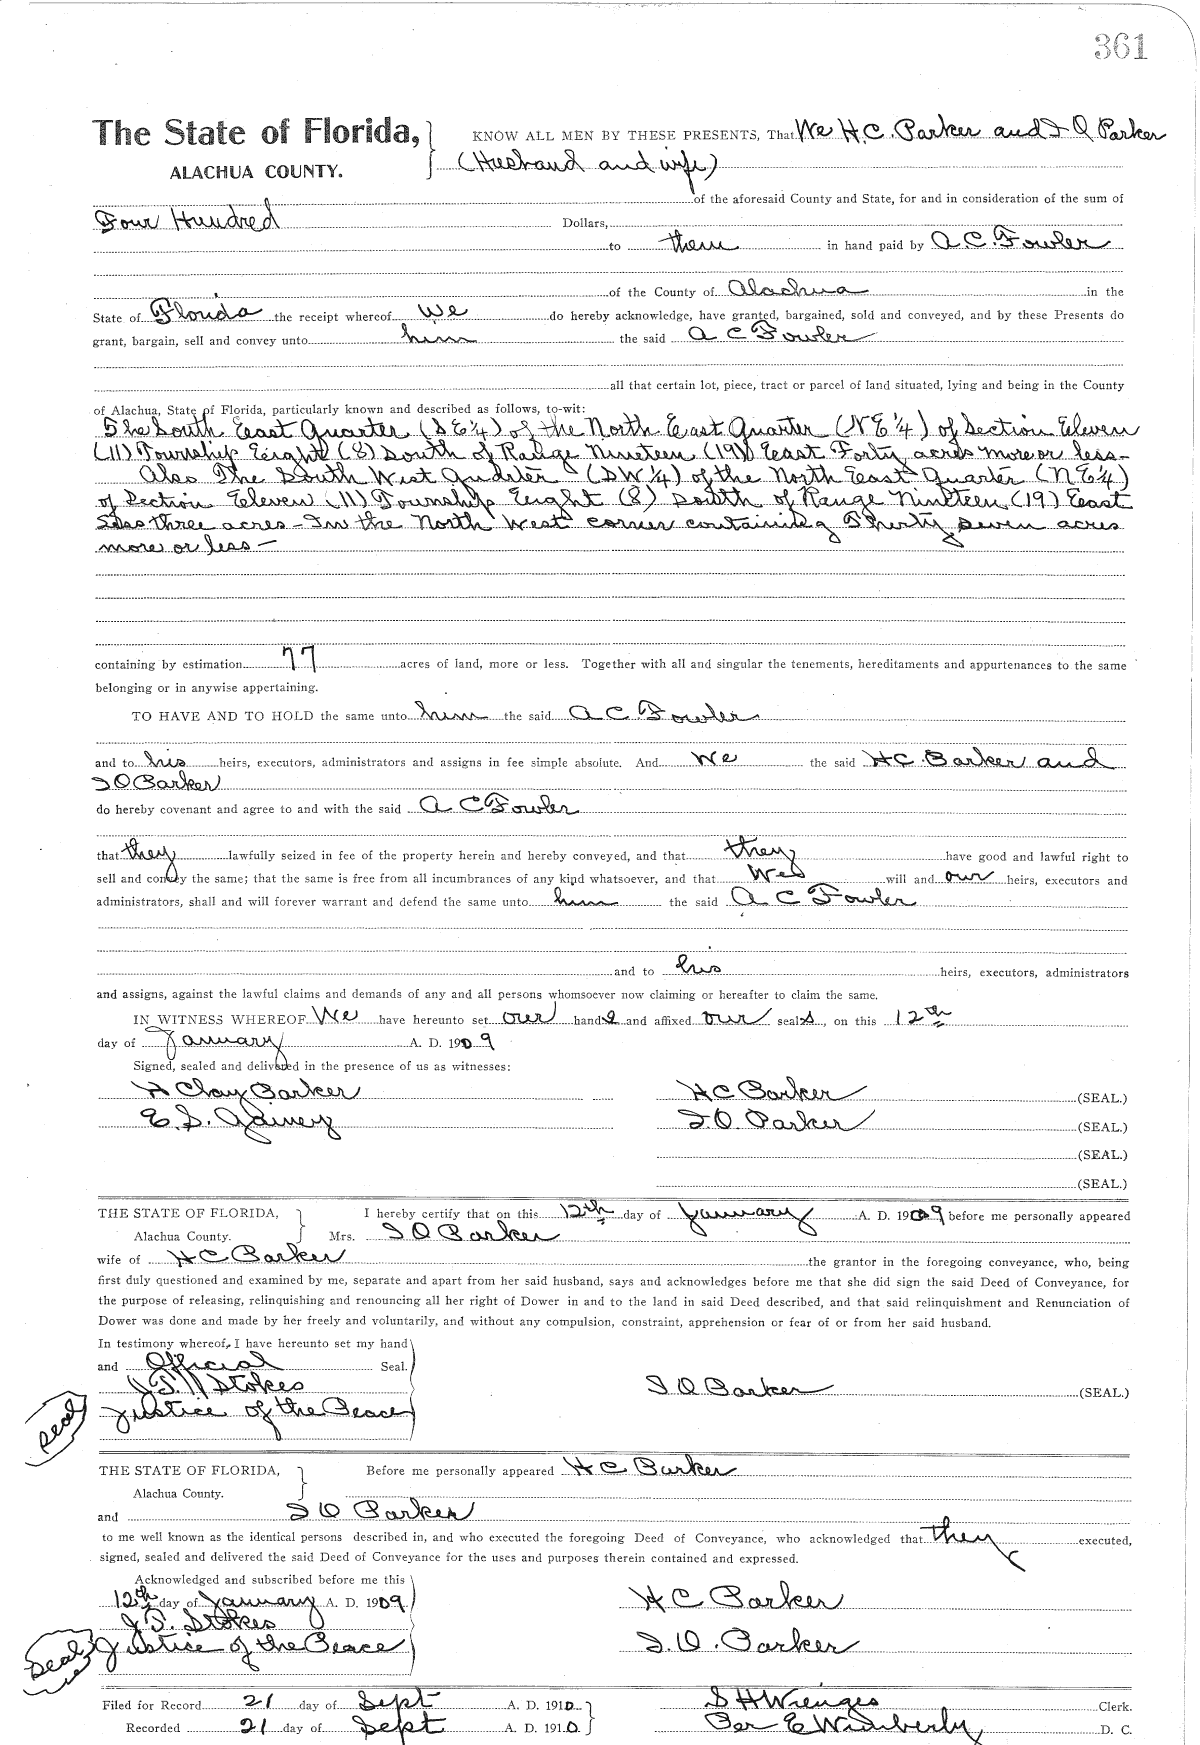 361
The State of Florida, KNOW ALL MEN BY THESE PRESENTS, That We H.C. Parker and I O Parker
ALACHUA COUNTY. (Husband and wife)
of the aforesaid County and State, for and in consideration of the sum of
Four Hundred Dollars,
to them in hand paid by A.C. Fowler
of the County of Alachua in the
State of Florida the receipt whereof we do hereby acknowledge, have granted, bargained, sold and conveyed, and by these Presents do
grant, bargain, sell and convey unto him the said A C Fowler
all that certain lot, piece, tract or parcel of land situated, lying and being in the County
of Alachua, State of Florida, particularly known and described as follows, to-wit:
The South East Quarter (S E 1/4) of the North East Quarter (N E 1/4) of Section Eleven
(11) Township Eight (8) South of Range Nineteen (19) East Forty acres more or less-
Also The South West Quarter (S W 1/4) of the North East Quarter (N E 1/4)
of Section Eleven (11) Township Eight (8) South of Range Nineteen (19) East
Less three acres - In the North West corner containing Thirty seven acres
more or less -
containing by estimation 77 acres of land, more or less. Together with all and singular the tenements, hereditaments and appurtenances to the same
belonging or in anywise appertaining.
TO HAVE AND TO HOLD the same unto him the said A C Fowler
and to his heirs, executors, administrators and assigns in fee simple absolute. And We the said H C Barker and
I O Barker
do hereby covenant and agree to and with the said A C Fowler
that they lawfully seized in fee of the property herein and hereby conveyed, and that they have good and lawful right to
sell and convey the same; that the same is free from all incumbrances of any kind whatsoever, and that We will and our heirs, executors and
administrators, shall and will forever warrant and defend the same unto him the said A C Fowler
and to his heirs, executors, administrators
and assigns, against the lawful claims and demands of any and all persons whomsoever now claiming or hereafter to claim the same.
IN WITNESS WHEREOF We have hereunto set our hands and affixed our seals, on this 12th
day of January A. D. 1909
Signed, sealed and delivered in the presence of us as witnesses:
H Clay Barker H C Barker (SEAL.)
E. S. I.O. Parker (SEAL.)
(SEAL.)
(SEAL.)
THE STATE OF FLORIDA, I hereby certify that on this 12th day of January A. D. 1909 before me personally appeared
Alachua County. Mrs. I O Barker
wife of H C Barker the grantor in the foregoing conveyance, who, being
first duly questioned and examined by me, separate and apart from her said husband, says and acknowledges before me that she did sign the said Deed of Conveyance, for
the purpose of releasing, relinquishing and renouncing all her right of Dower in and to the land in said Deed described, and that said relinquishment and Renunciation of
Dower was done and made by her freely and voluntarily, and without any compulsion, constraint, apprehension or fear of or from her said husband.
In testimony whereof, I have hereunto set my hand
and Official Seal.
Stokes I O Barker (SEAL.)
Seal Justice of the Peace
THE STATE OF FLORIDA, Before me personally appeared H C Barker
Alachua County.
and I O Parker
to me well known as the identical persons described in, and who executed the foregoing Deed of Conveyance, who acknowledged that they executed,
signed, sealed and delivered the said Deed of Conveyance for the uses and purposes therein contained and expressed.
Acknowledged and subscribed before me this
12th day of January A. D. 1909 H C Parker
J. T. Stokes
Seal Justice of the Peace I. O. Parker
Filed for Record 21 day of Sept A. D. 1910 S H Wienges Clerk.
Recorded 21 day of Sept A. D. 1910. Per E Wimberly D. C.